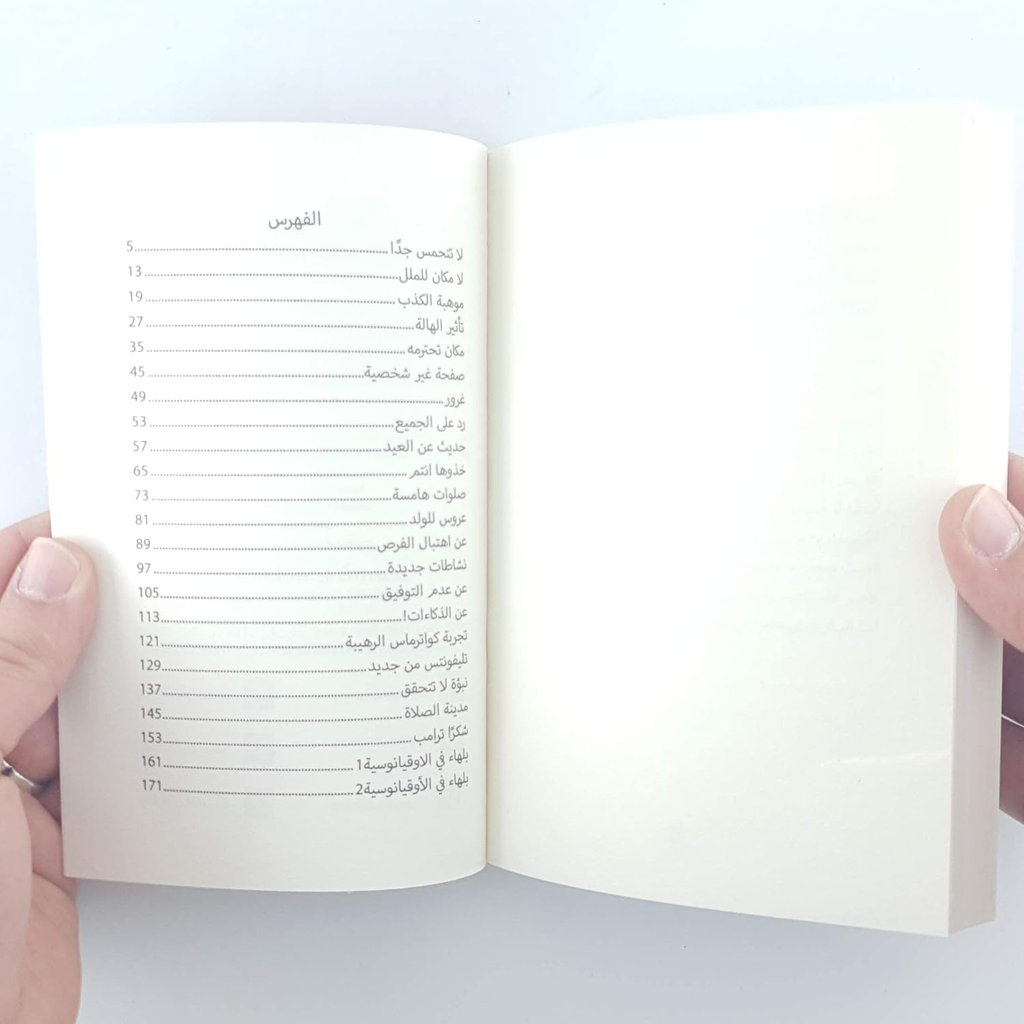 الفهرس
لا تتحمس جدًّا ........ 5
لا مكان للملل ........ 13
موهبة الكذب ........ 19
تأثير الهالة ........ 27
مكان تحترمه ........ 35
صفحة غير شخصية ........ 45
غرور ........ 49
رد على الجميع ........ 53
حديث عن العيد ........ 57
خذوها انتم ........ 65
صلوات هامسة ........ 73
عروس للولد ........ 81
عن اهتبال الفرص ........ 89
نشاطات جديدة ........ 97
عن عدم التوفيق ........ 105
عن الذكاءات! ........ 113
تجربة كواترماس الرهيبة ........ 121
تليفونتس من جديد ........ 129
نبؤة لا تتحقق ........ 137
مدينة الصلاة ........ 145
شكرًا ترامب ........ 153
بلهاء في الاوقيانوسية1 ........ 161
بلهاء في الأوقيانوسية2 ........ 171